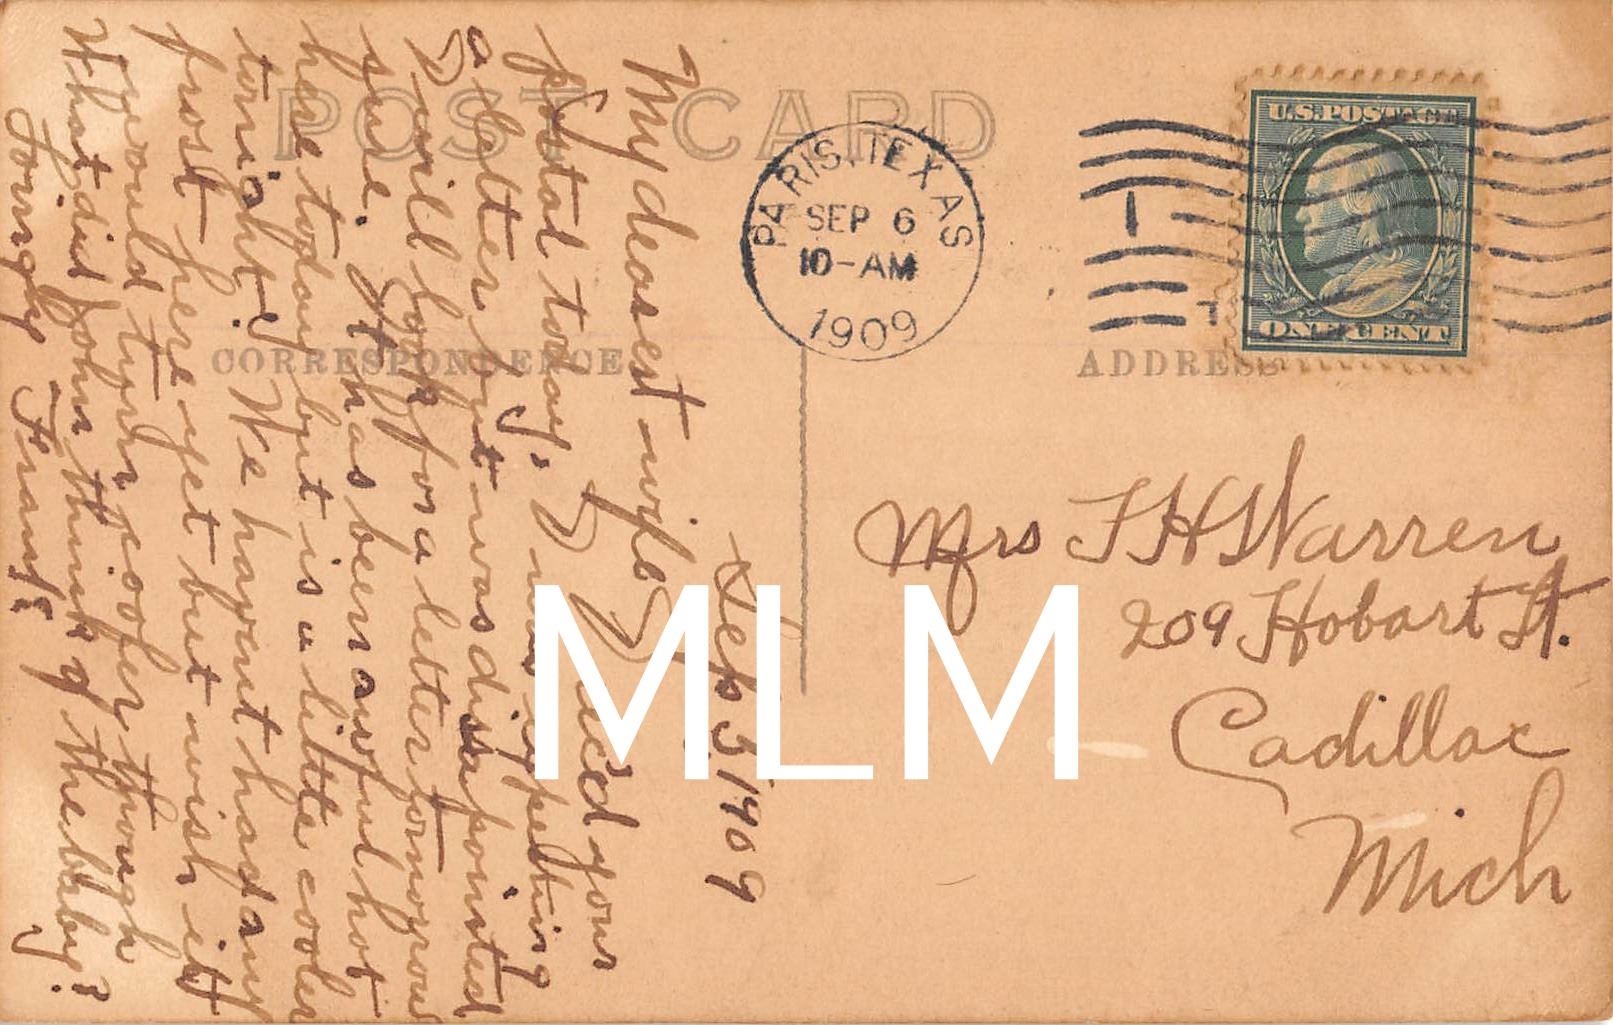 POST CARD
CORRESPONDENCE
ADDRESS
PARIS, TEXAS
SEP 6
10-AM
1909
1
U.S. POSTAGE
ONE CENT
Mrs F H Warren
209 Hobart St.
Cadillac
Mich
Sep 5 1909
My dearest wife I rec'd your
postal today. I was expecting
a letter but was disapointed
I will look for a letter tomorrow
sure. It has been awful hot
here today but is a little cooler
tonight. We havent had any
frost here yet but wish it
would turn cooler though
What did John think of the baby?
Loringly Frank
MLM